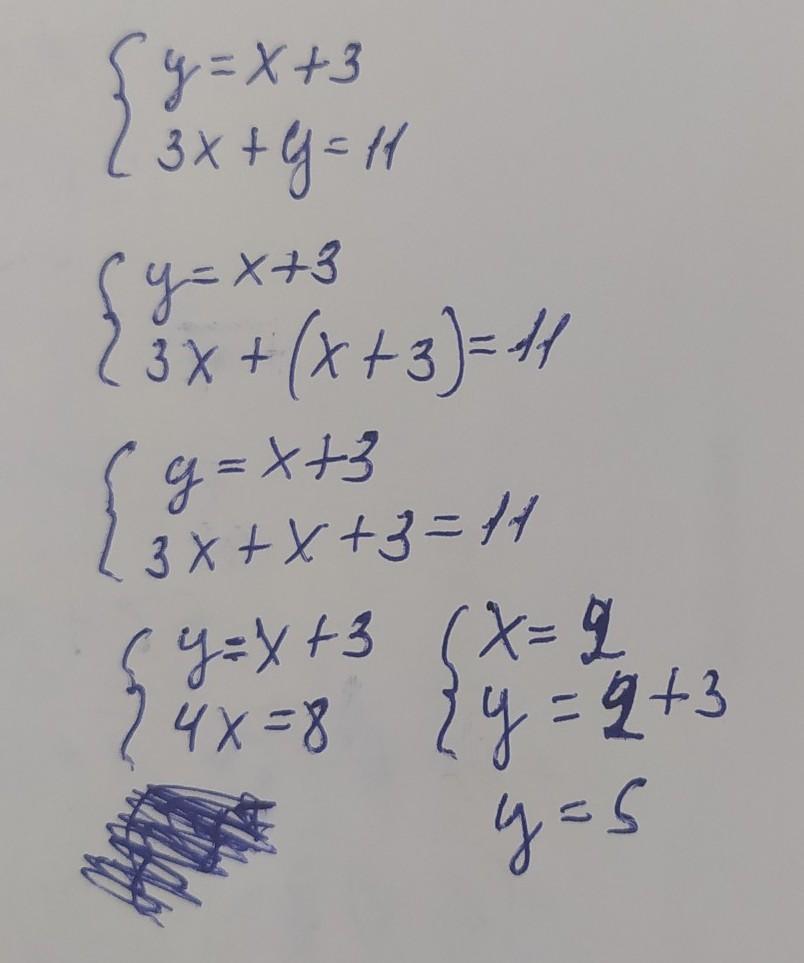 y = x + 3
3x + y = 11
y = x + 3
3x + (x + 3) = 11
y = x + 3
3x + x + 3 = 11
y = x + 3
4x = 8
x = 2
y = 2 + 3
y = 5